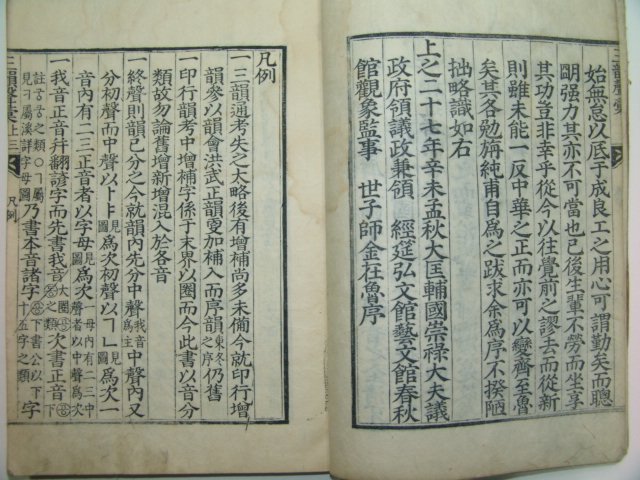 始無怠以底于成良工之用心可謂勤矣而聰
明强力其亦不可當也已後生輩不勞而坐享
其功豈非幸乎從今以往覺前之謬去而從新
則雖未能一反中華之正而亦可以變齊至魯
矣其各勉旃純甫自爲之跋求余爲序不揆陋
拙略識如右
上之二十七年辛未孟秋大匡輔國崇祿大夫議
政府領議政兼領 經筵弘文館藝文館春秋
館觀象監事 世子師金在魯序
三韻聲彙
凡例
一三韻通考失之太略後有增補尚多未備今就印行增
韻參以韻會洪武正韻更加補入而序韻東冬之序仍舊
一印行韻考中增補字係于末界以圈而今此書以音分
類故勿論舊增新增混入於各音
一終聲則韻已分之今就韻內先分中聲我音爲主中聲內又
分初聲而中聲以ㅏㅑ見圖爲次初聲以ㄱㄴ見圖爲次一
音內有二三正音者以字母見圖爲次一母內有二三中聲者以中聲爲次
一我音正音幷翻諺字而先書我音大圈之類次書正音下
註 之類 ㄱ屬見ㅋ屬溪詳字母圖乃書本音諸字 下書公以下十五字之類
三韻聲彙上 凡例 三